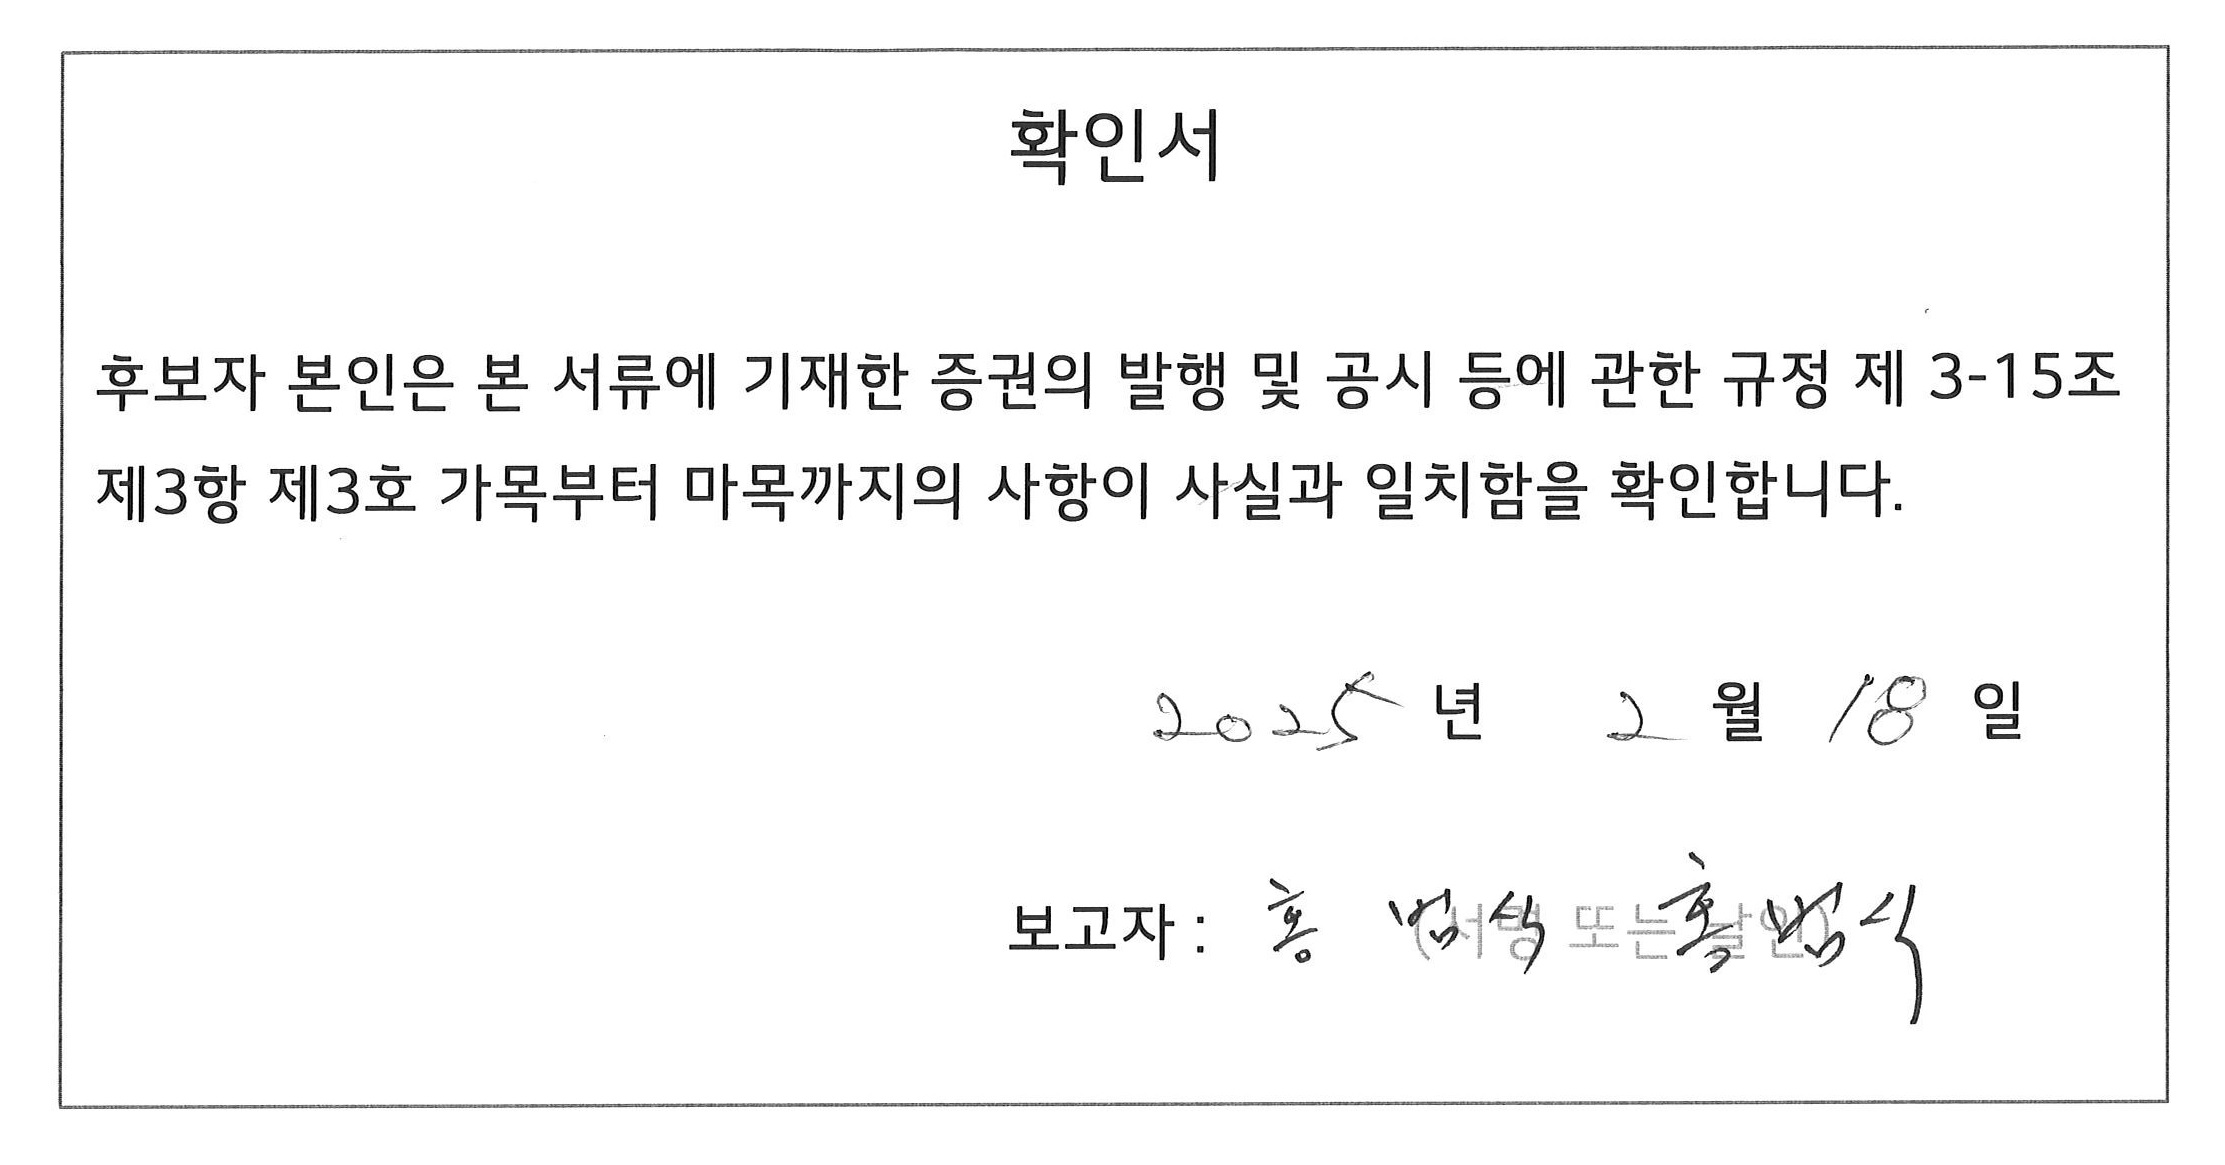 확인서
후보자 본인은 본 서류에 기재한 증권의 발행 및 공시 등에 관한 규정 제 3-15조
제3항 제3호 가목부터 마목까지의 사항이 사실과 일치함을 확인합니다.
2025 년 2 월 18 일
보고자 : 홍 범식 (서명 또는 날인) 홍범식